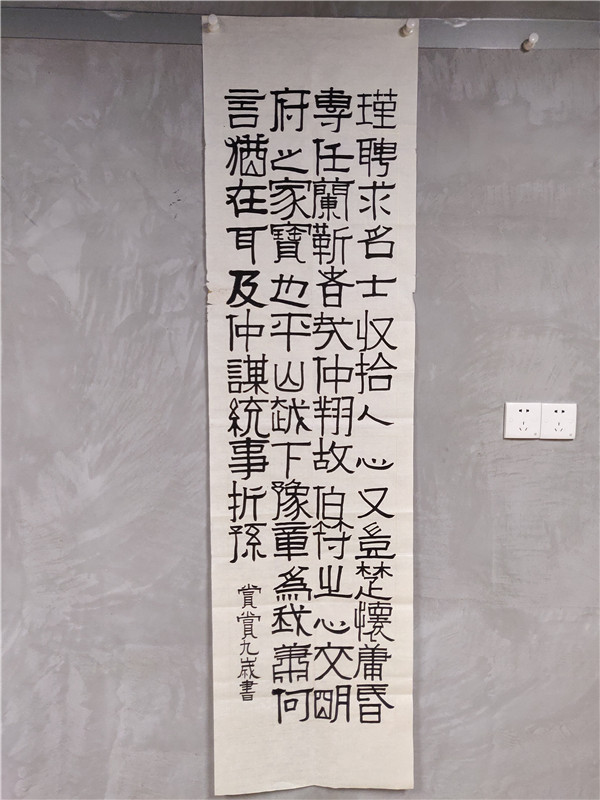 瑾聘求名士收拾人心又豈楚懷庸昏
專任蘭靳者哉仲翔故伯符之心交明
府之家寶也平山越下豫章為我蕭何
言猶在耳及仲謀統事折孫
賞賞九歲書